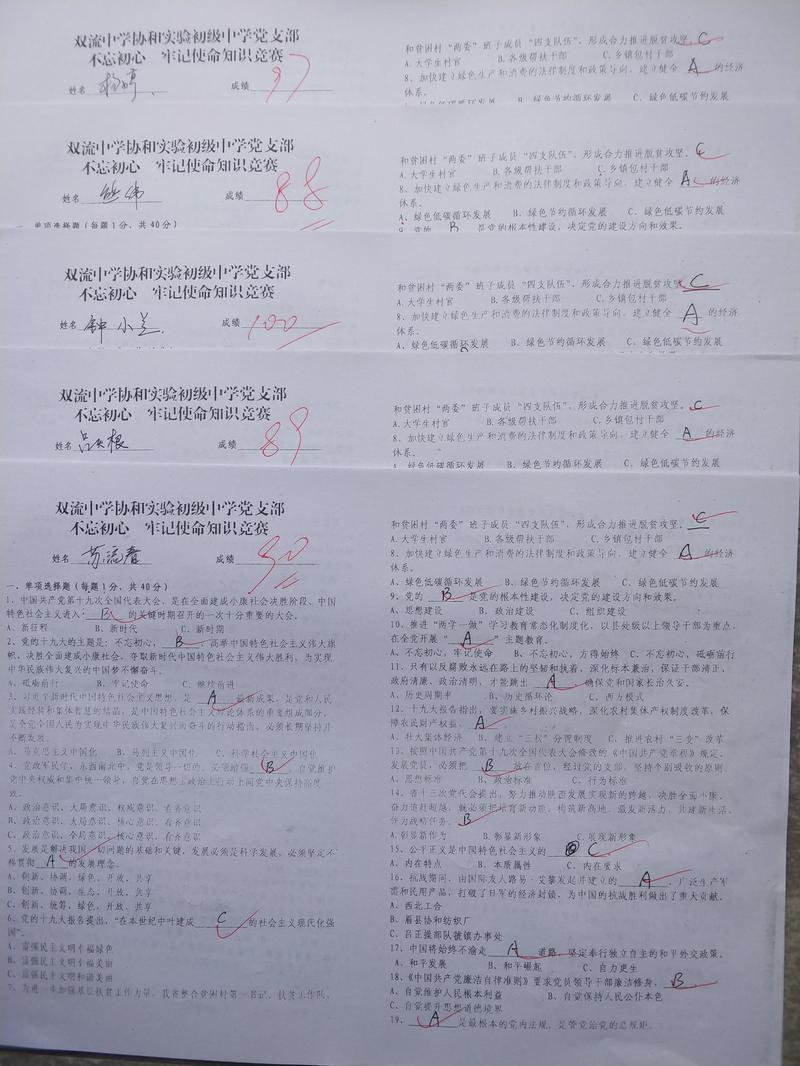 双流中学协和实验初级中学党支部
不忘初心 牢记使命知识竞赛
姓名 杨婷 成绩 97
和贫困村“两委”班子成员“四支队伍”，形成合力推进脱贫攻坚。C
A.大学生村官 B.各级帮扶干部 C.乡镇包村干部
8、加快建立绿色生产和消费的法律制度和政策导向，建立健全 A 的经济
体系。
A、绿色低碳循环发展 B、绿色节约循环发展 C、绿色低碳节约发展
双流中学协和实验初级中学党支部
不忘初心 牢记使命知识竞赛
姓名 熊伟 成绩 88
一、单项选择题（每题1分，共40分）
和贫困村“两委”班子成员“四支队伍”，形成合力推进脱贫攻坚。C
A.大学生村官 B.各级帮扶干部 C.乡镇包村干部
8、加快建立绿色生产和消费的法律制度和政策导向，建立健全 A 的经济
体系。
A、绿色低碳循环发展 B、绿色节约循环发展 C、绿色低碳节约发展
9、党的 B 是党的根本性建设，决定党的建设方向和效果。
双流中学协和实验初级中学党支部
不忘初心 牢记使命知识竞赛
姓名 钟小兰 成绩 100
和贫困村“两委”班子成员“四支队伍”，形成合力推进脱贫攻坚。C
A.大学生村官 B.各级帮扶干部 C.乡镇包村干部
8、加快建立绿色生产和消费的法律制度和政策导向，建立健全 A 的经济
体系。
A、绿色低碳循环发展 B、绿色节约循环发展 C、绿色低碳节约发展
双流中学协和实验初级中学党支部
不忘初心 牢记使命知识竞赛
姓名 成绩 89
和贫困村“两委”班子成员“四支队伍”，形成合力推进脱贫攻坚。C
A.大学生村官 B.各级帮扶干部 C.乡镇包村干部
8、加快建立绿色生产和消费的法律制度和政策导向，建立健全 A 的经济
体系。
A、绿色低碳循环发展 B、绿色节约循环发展 C、绿色低碳节约发展
双流中学协和实验初级中学党支部
不忘初心 牢记使命知识竞赛
姓名 苏流春 成绩 90
一、单项选择题（每题1分，共40分）
1、中国共产党第十九次全国代表大会，是在全面建成小康社会决胜阶段、中国
特色社会主义进入 B 的关键时期召开的一次十分重要的大会。
A、新征程 B、新时代 C、新时期
2、党的十九大的主题是：不忘初心， B ，高举中国特色社会主义伟大旗
帜，决胜全面建成小康社会，夺取新时代中国特色社会主义伟大胜利，为实现
中华民族伟大复兴的中国梦不懈奋斗。
A、砥砺前行 B、牢记使命 C、继续前进
3、习近平新时代中国特色社会主义思想，是 A 最新成果，是党和人民
实践经验和集体智慧的结晶，是中国特色社会主义理论体系的重要组成部分，
是全党全国人民为实现中华民族伟大复兴而奋斗的行动指南，必须长期坚持并
不断发展。
A、马克思主义中国化 B、马列主义中国化 C、科学社会主义中国化
4、党政军民学，东西南北中，党是领导一切的。必须增强 B ，自觉维护
党中央权威和集中统一领导，自觉在思想上政治上行动上同党中央保持高度一
致。
A、政治意识、大局意识、权威意识、看齐意识
B、政治意识、大局意识、核心意识、看齐意识
C、政治意识、全局意识、核心意识、看齐意识
5、发展是解决我国一切问题的基础和关键，发展必须是科学发展，必须坚定不
移贯彻 A 的发展理念。
A、创新、协调、绿色、开放、共享
B、创新、协调、生态、开放、共享
C、创新、统筹、绿色、开放、共享
6、党的十九大报告提出，“在本世纪中叶建成 C 的社会主义现代化强
国”。
A、富强民主文明幸福绿色
B、富强民主文明幸福美丽
C、富强民主文明和谐美丽
7、为进一步加强基层扶贫工作力量，我省整合贫困村第一书记、扶贫工作队、
和贫困村“两委”班子成员“四支队伍”，形成合力推进脱贫攻坚。C
A.大学生村官 B.各级帮扶干部 C.乡镇包村干部
8、加快建立绿色生产和消费的法律制度和政策导向，建立健全 A 的经济
体系。
A、绿色低碳循环发展 B、绿色节约循环发展 C、绿色低碳节约发展
9、党的 B 是党的根本性建设，决定党的建设方向和效果。
A、思想建设 B、政治建设 C、组织建设
10、推进“两学一做”学习教育常态化制度化，以县处级以上领导干部为重点，
在全党开展“ A ”主题教育。
A、不忘初心、牢记使命 B、不忘初心、方得始终 C、不忘初心、砥砺前行
11、只有以反腐败永远在路上的坚韧和执着，深化标本兼治，保证干部清正、
政府清廉、政治清明，才能跳出 A 确保党和国家长治久安。
A、历史周期率 B、历史循环论 C、西方模式
12、十九大报告指出，要实施乡村振兴战略，深化农村集体产权制度改革，保
障农民财产权益，A
A、壮大集体经济 B、建立“三权”分置制度 C、推进农村“三变”改革
13、按照中国共产党第十九次全国代表大会修改的《中国共产党章程》规定，
发展党员，必须把 B 放在首位，经过党的支部，坚持个别吸收的原则。
A、思想标准 B、政治标准 C、行为标准
14、省十三次党代会提出，努力推动陕西发展实现新的跨越，决胜全面小康、
奋力追赶超越，就必须把培育新动能、构筑新高地、激发新活力、共建新生活、
作为战略任务。B
A.彰显新作为 B.彰显新形象 C.展现新形象
15、公平正义是中国特色社会主义的 C 。
A、内在特点 B、本质属性 C、内在要求
16、抗战期间，由国际友人路易·艾黎发起并建立的 A ，广泛生产军
需和民用产品，打破了日军的经济封锁，为中国的抗战胜利做出了重大贡献。
A、西北工合
B、眉县协和纺织厂
C、吕正操部队虢镇办事处
17、中国将始终不渝走 A 道路，坚定奉行独立自主的和平外交政策。
A、和平发展 B、和平崛起 C、自力更生
18、《中国共产党廉洁自律准则》要求党员领导干部廉洁修身， B
A、自觉维护人民根本利益 B、自觉保持人民公仆本色
C、自觉提升思想道德境界
19、 A 是最根本的党内法规，是管党治党的总规矩。